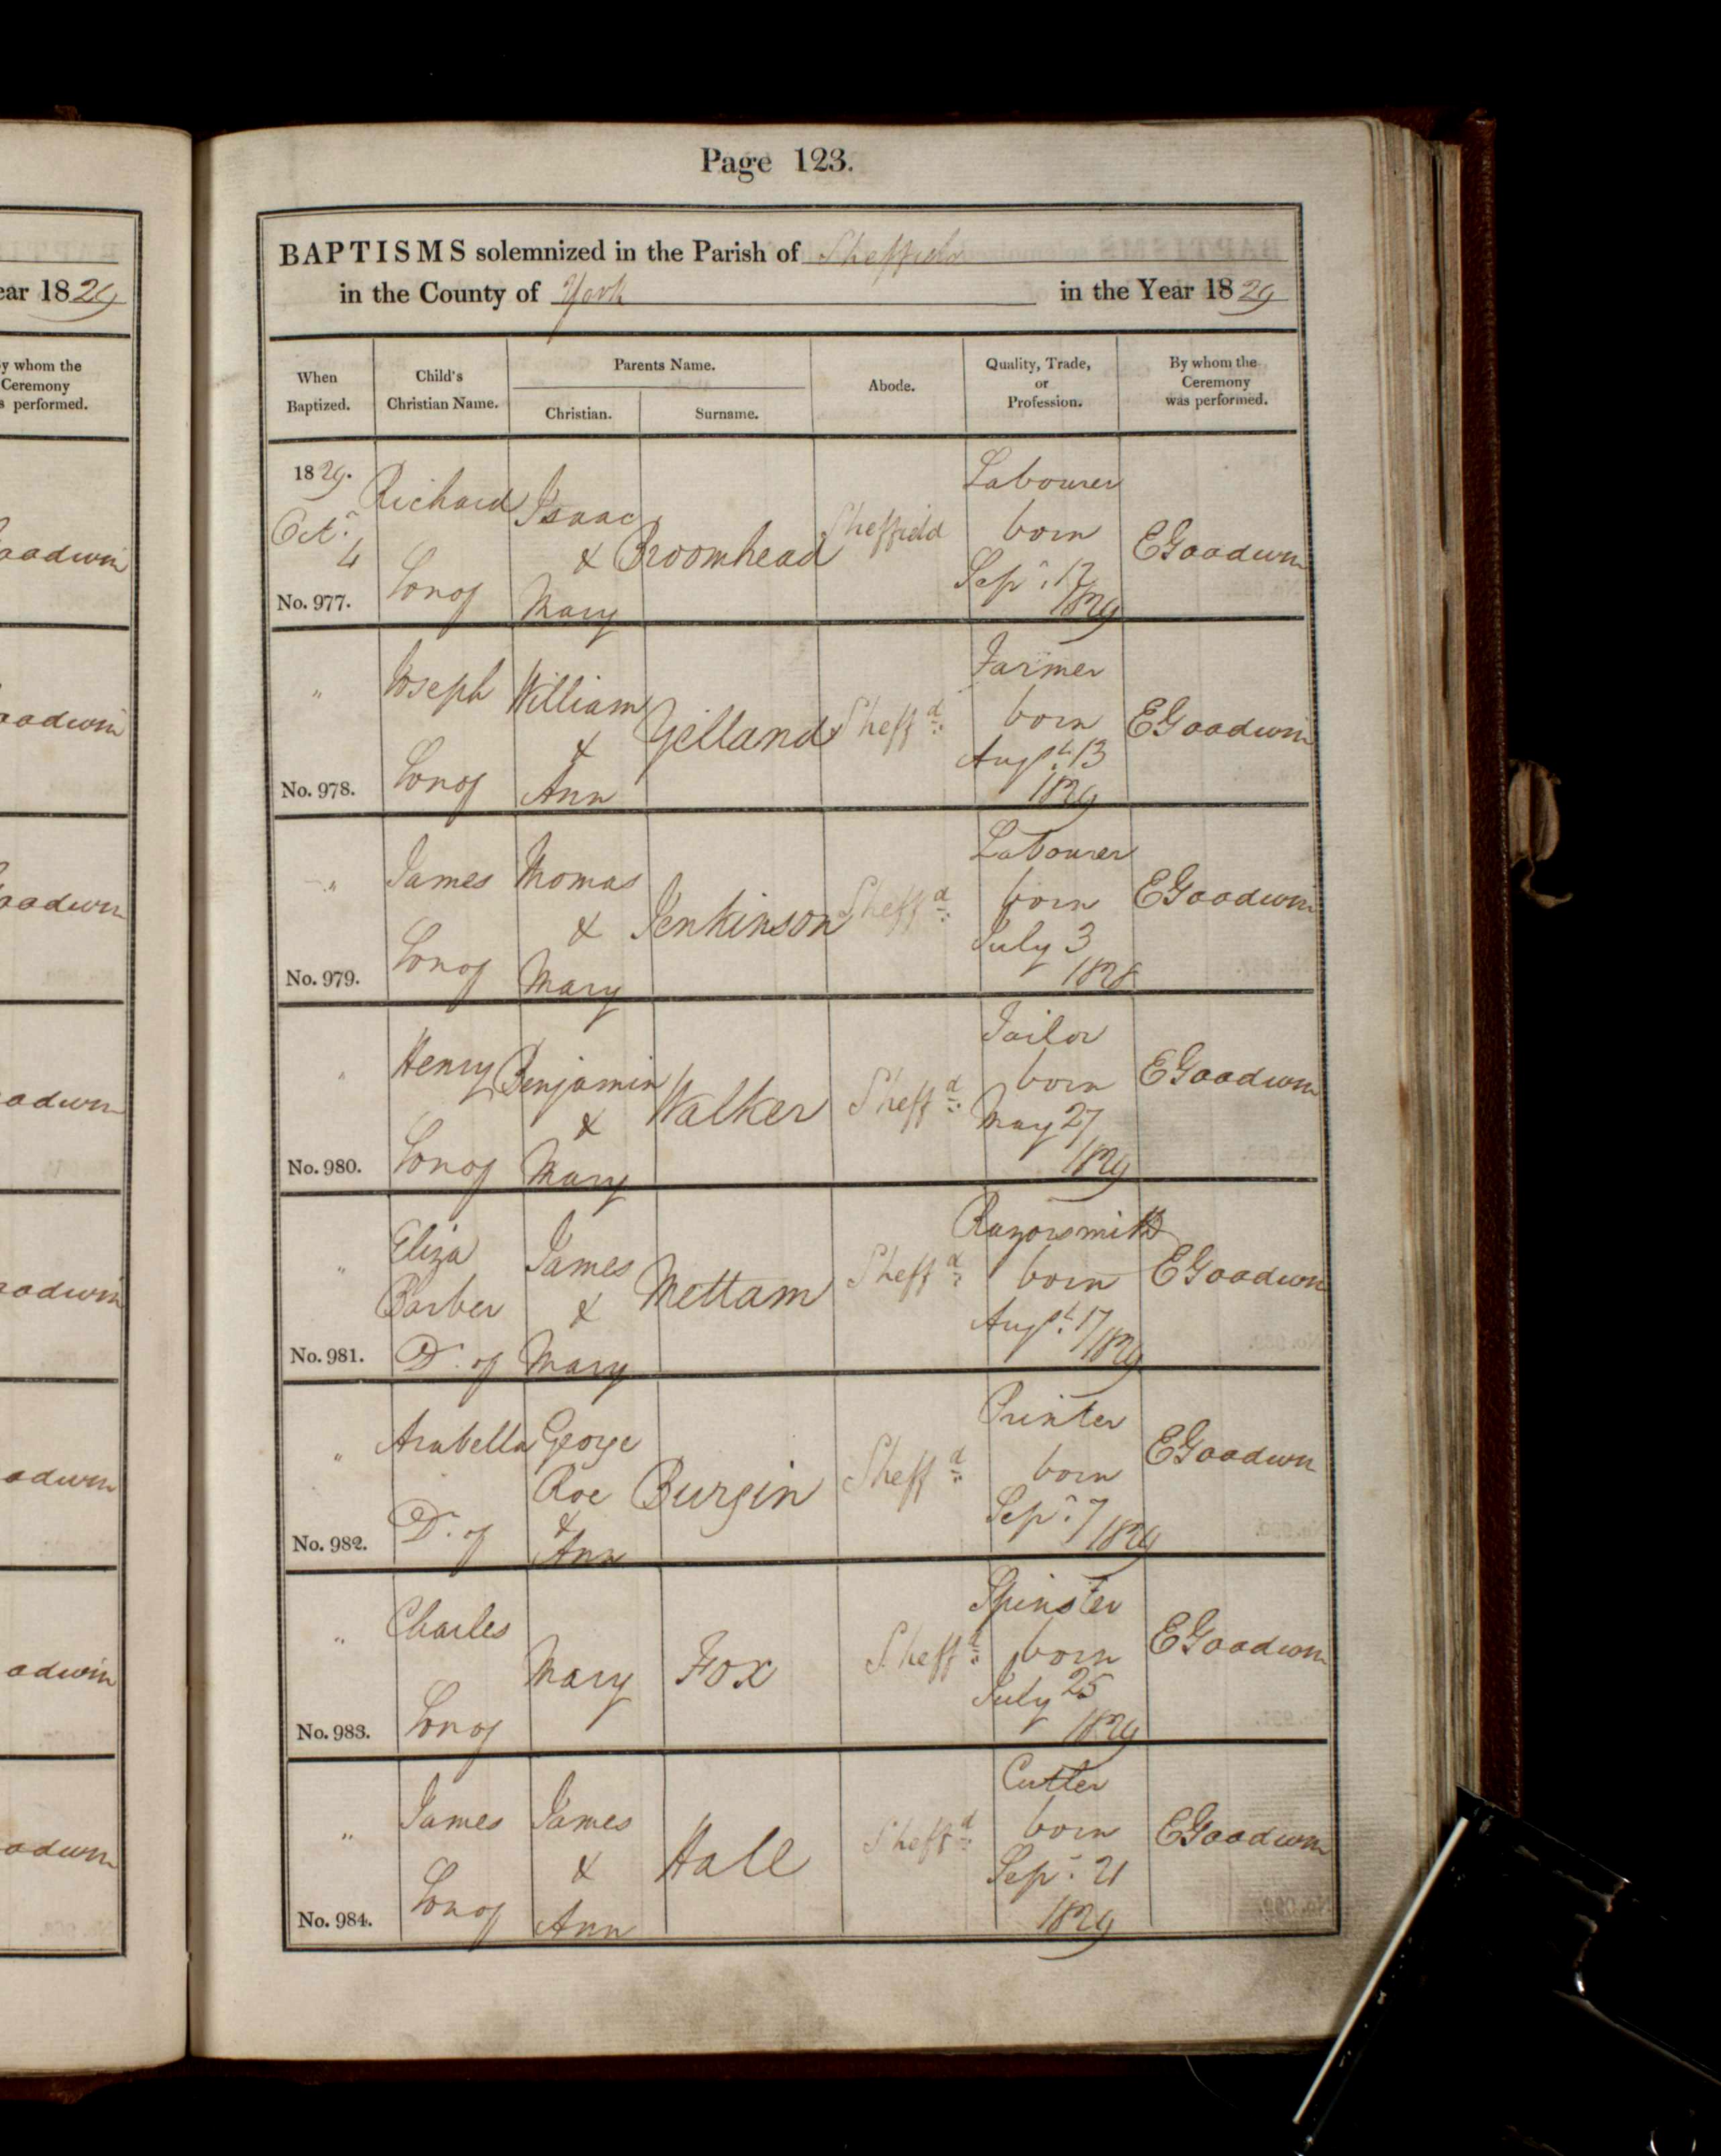 ear 1829
y whom the
Ceremony
s performed.
Page 123.
BAPTISMS solemnized in the Parish of Sheffield
in the County of York in the Year 1829
When Baptized.
Child's Christian Name.
Parents Name.
Christian.
Surname.
Abode.
Quality, Trade, or Profession.
By whom the Ceremony was performed.
1829.
Octr.
4
No. 977.
Richard
Son of
Isaac
&
Mary
Broomhead
Sheffield
Labourer
born
Sepr. 12
1829
EGoodwin
"
No. 978.
Joseph
Son of
William
&
Ann
Sheffd.
Farmer
born
Augst. 13
1829
EGoodwin
"
No. 979.
James
Son of
Thomas
&
Mary
Jenkinson
Sheffd.
Labourer
born
July 3
1828
EGoodwin
"
No. 980.
Henry
Son of
Benjamin
&
Mary
Walker
Sheffd.
Tailor
born
May 27
1829
EGoodwin
"
No. 981.
Eliza
Barber
D. of
James
&
Mary
Mettam
Sheffd.
Razorsmith
born
Augst. 17
1829
EGoodwin
"
No. 982.
Arabella
D. of
George
Roe
&
Ann
Burgin
Sheffd.
Printer
born
Sepr. 7
1829
EGoodwin
"
No. 983.
Charles
Son of
Mary
Fox
Sheffd.
Spinster
born
July 25
1829
EGoodwin
"
No. 984.
James
Son of
James
&
Ann
Hall
Sheffd.
Cutler
born
Sepr. 21
1829
EGoodwin